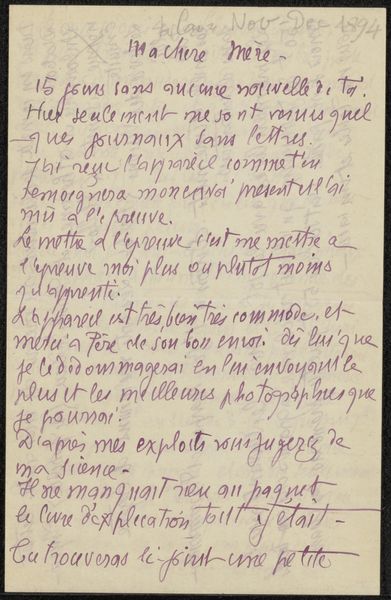 Nov-Dec 1894
Ma chère Mère -
15 jours sans aucune nouvelle de toi.
Hier seulement me sont venus quel
ques journaux sans lettres.
J'ai reçu l'appareil comme t'en
temoignera mon envoi present et l'ai
mis à l'epreuve.
Le mettre a l'épreuve c'est me mettre a
l'épreuve moi plus ou plutot moins
qu'apprenti.
L'appareil est très, bien très commode, et
merci à Père de son bon envoi. dis lui que
je le dedommagerai en lui envoyant le
plus et les meilleures photographies que
je pourrai.
D'après mes exploits vous jugerez de
ma science -
Il ne manquait rien au paquet
le livre d'explication tout y était -
Tu trouveras ci-joint une petite